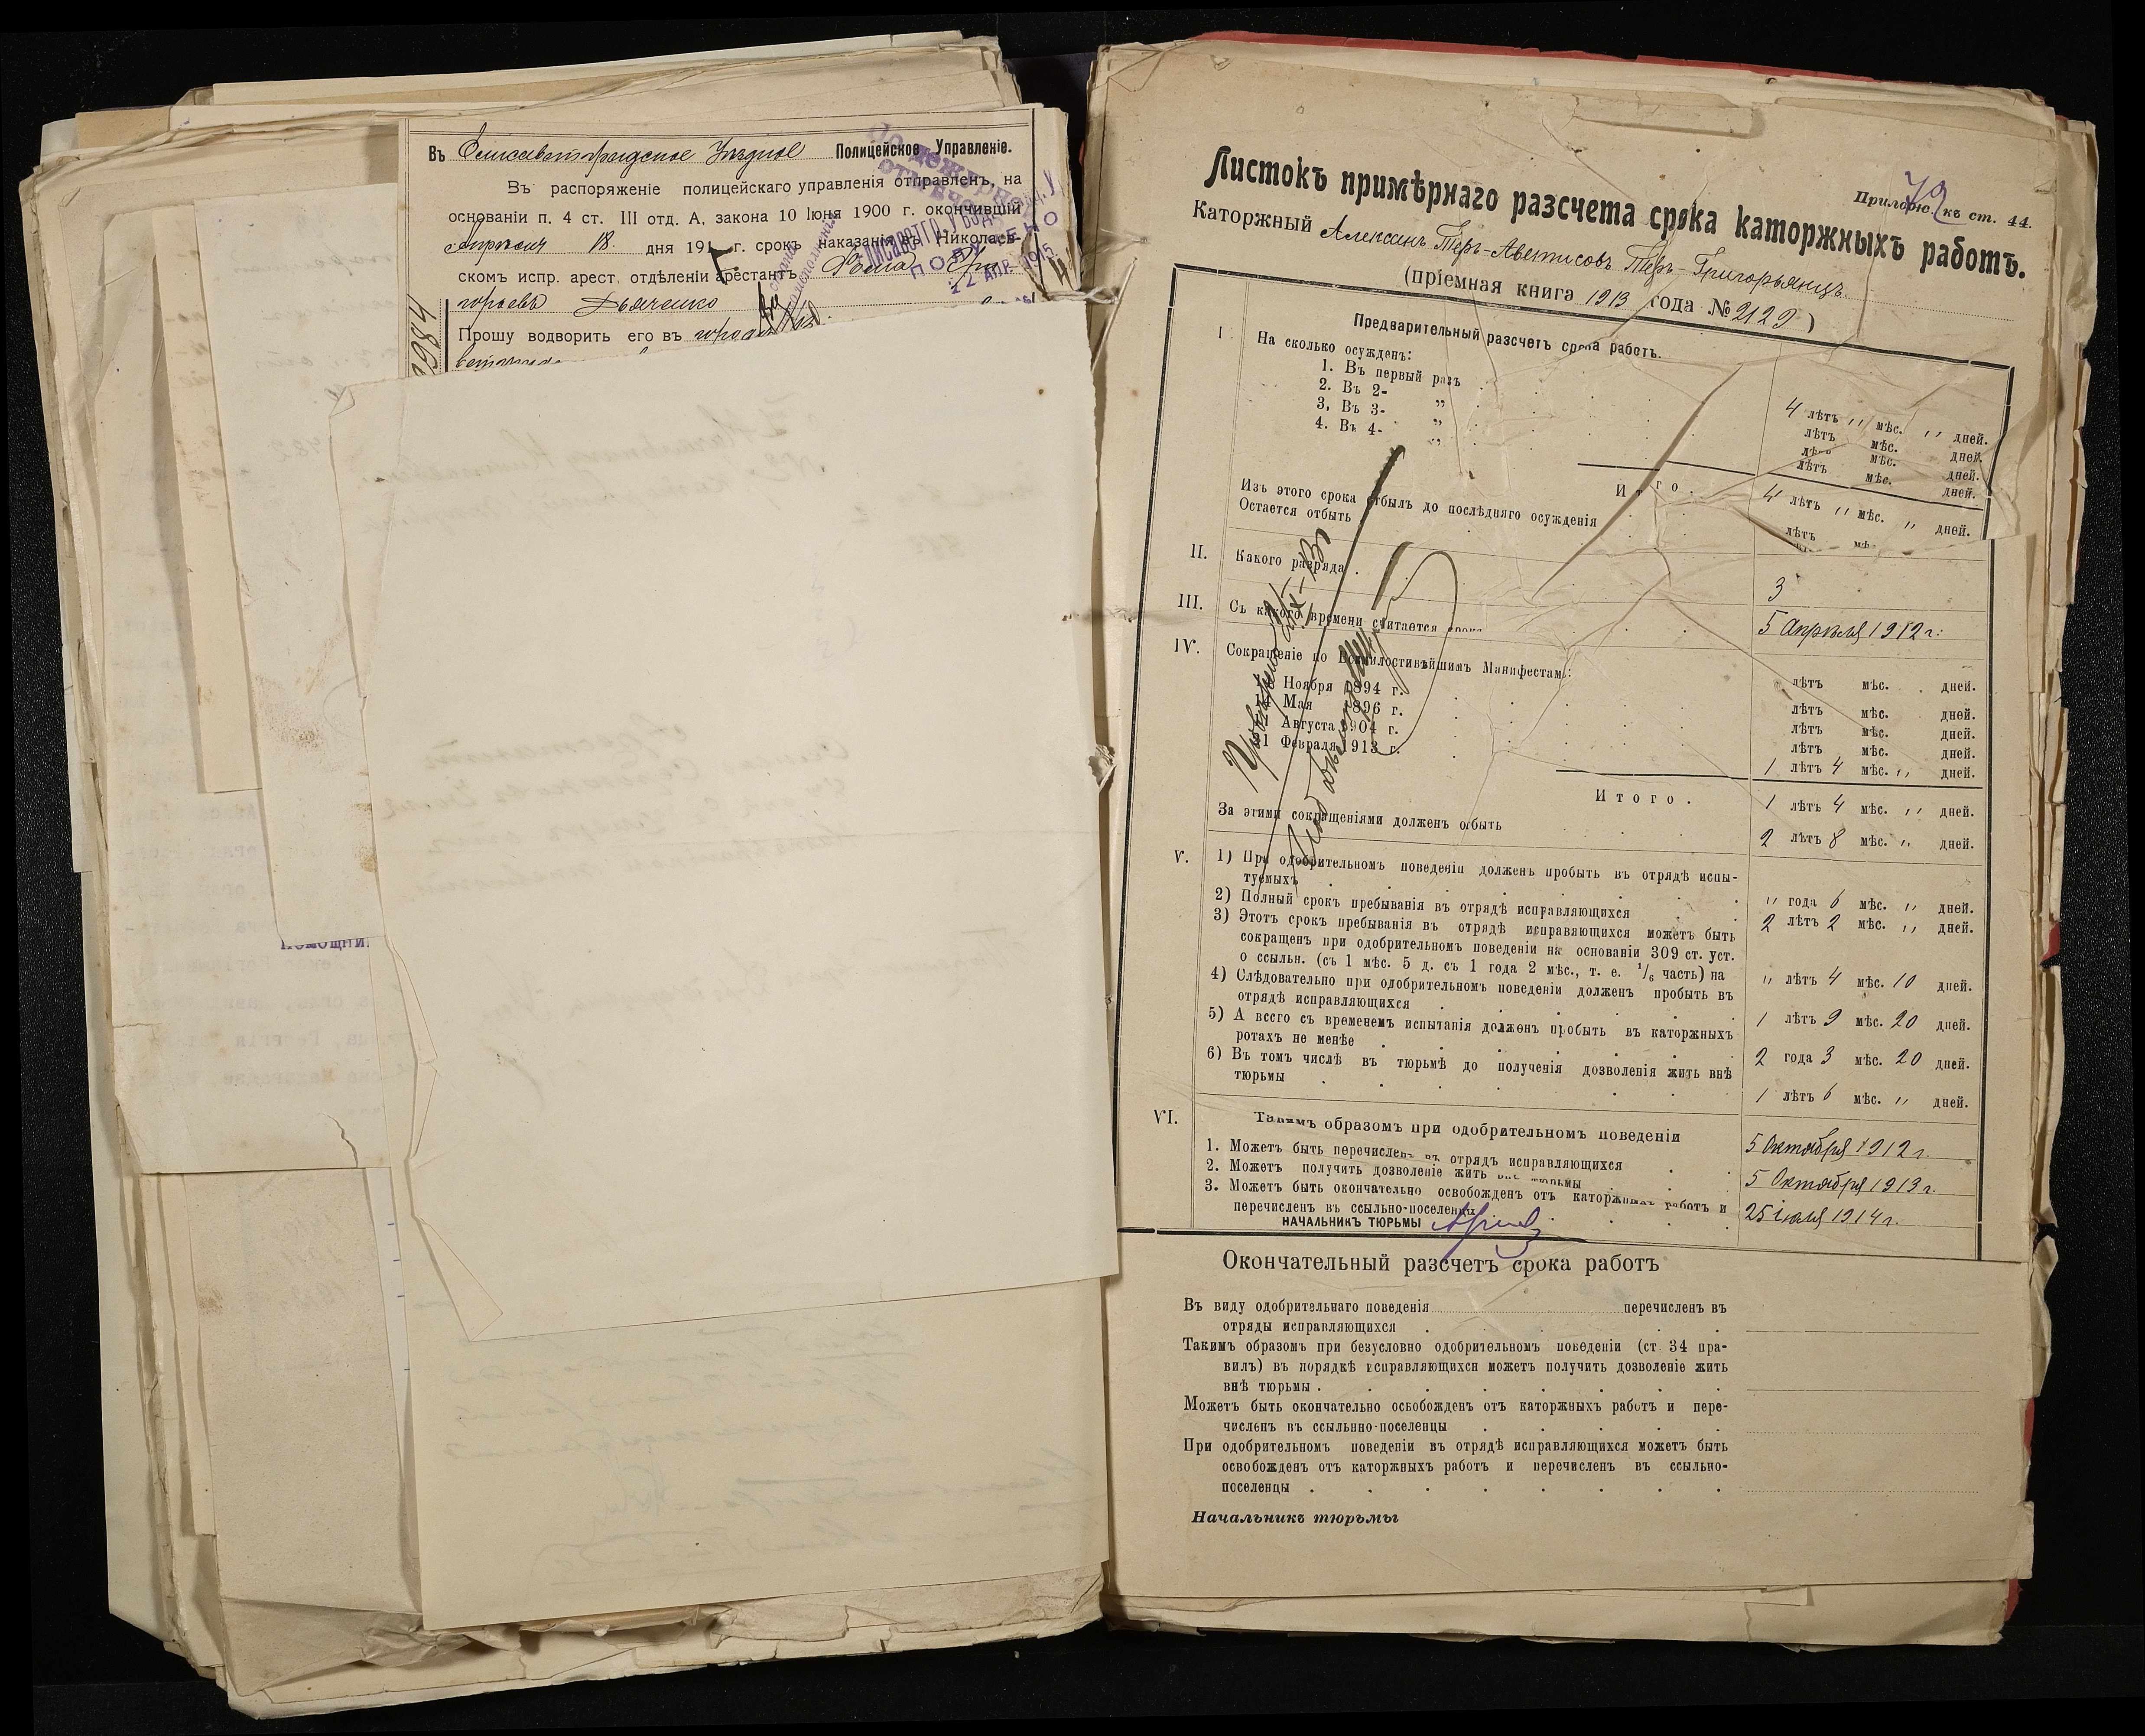 Въ Елисаветградское Уѣздное Полицейское Управленіе.
Въ распоряженіе полицейскаго управленія отправленъ, на
основаніи п. 4 ст. III отд. А, закона 10 Іюня 1900 г. окончившій
Апрѣля 18 дня 191 г. срокъ наказанія въ Николаев-
скомъ испр. арест. отдѣленіи арестантъ
горьевъ Дьяченко
Прошу водворить его въ
ПОЛУЧЕНО
22 АПР. 1915
3984
Помощни
Прилож. къ ст. 44.
79
Листокъ примѣрнаго разсчета срока каторжныхъ работъ.
Каторжный Алексанъ Теръ-Аветисовъ Теръ-Григорьянцъ
(пріемная книга 1913 года № 2129)
Предварительный разсчетъ срока работъ.
I. На сколько осужденъ:
1. Въ первый разъ 4 лѣтъ " мѣс. " дней.
2. Въ 2- " лѣтъ мѣс. дней.
3. Въ 3- " лѣтъ мѣс. дней.
4. Въ 4- " лѣтъ мѣс. дней.
Итого. 4 лѣтъ " мѣс. " дней.
Изъ этого срока отбылъ до послѣдняго осужденія лѣтъ
Остается отбыть
II. Какого разряда 3
III. Съ какого времени считается срокъ 5 Апрѣля 1912 г.
IV. Сокращеніе по Всемилостивѣйшимъ Манифестам:
Ноября 1894 г. лѣтъ мѣс. дней.
Мая 1896 г. лѣтъ мѣс. дней.
Августа 1904 г. лѣтъ мѣс. дней.
21 Февраля 1913 г. лѣтъ мѣс. дней.
1 лѣтъ 4 мѣс. " дней.
Итого. 1 лѣтъ 4 мѣс. " дней.
За этими сокращеніями долженъ отбыть 2 лѣтъ 8 мѣс. " дней.
V. 1) При одобрительномъ поведеніи долженъ пробыть въ отрядѣ испы-
туемыхъ " года 6 мѣс. " дней.
2) Полный срокъ пребыванія въ отрядѣ исправляющихся 2 лѣтъ 2 мѣс. " дней.
3) Этотъ срокъ пребыванія въ отрядѣ исправляющихся можетъ быть
сокращенъ при одобрительномъ поведеніи на основаніи 309 ст. уст.
о ссыльн. (съ 1 мѣс. 5 д. съ 1 года 2 мѣс., т. е. 1/6 часть) на " лѣтъ 4 мѣс. 10 дней.
4) Слѣдовательно при одобрительномъ поведеніи долженъ пробыть въ
отрядѣ исправляющихся 1 лѣтъ 9 мѣс. 20 дней.
5) А всего съ временемъ испытанія долженъ пробыть въ каторжныхъ
ротахъ не менѣе 2 года 3 мѣс. 20 дней.
6) Въ томъ числѣ въ тюрьмѣ до полученія дозволенія жить внѣ
тюрьмы 1 лѣтъ 6 мѣс. " дней.
VI. Такимъ образомъ при одобрительномъ поведеніи
1. Можетъ быть перечисленъ въ отрядъ исправляющихся 5 Октября 1912 г.
2. Можетъ получить дозволеніе жить внѣ тюрьмы 5 Октября 1913 г.
3. Можетъ быть окончательно освобожденъ отъ каторжныхъ работъ и
перечисленъ въ ссыльно-поселенцы 25 іюля 1914 г.
НАЧАЛЬНИКЪ ТЮРЬМЫ
Окончательный разсчетъ срока работъ
Въ виду одобрительнаго поведенія перечисленъ въ
отряды исправляющихся
Такимъ образомъ при безусловно одобрительномъ поведеніи (ст. 34 пра-
вилъ) въ порядкѣ исправляющихся можетъ получить дозволеніе жить
внѣ тюрьмы
Можетъ быть окончательно освобожденъ отъ каторжныхъ работъ и пере-
численъ въ ссыльнно-поселенцы
При одобрительномъ поведеніи въ отрядѣ исправляющихся можетъ быть
освобожденъ отъ каторжныхъ работъ и перечисленъ въ ссыльно-
поселенцы
Начальникъ тюрьмы